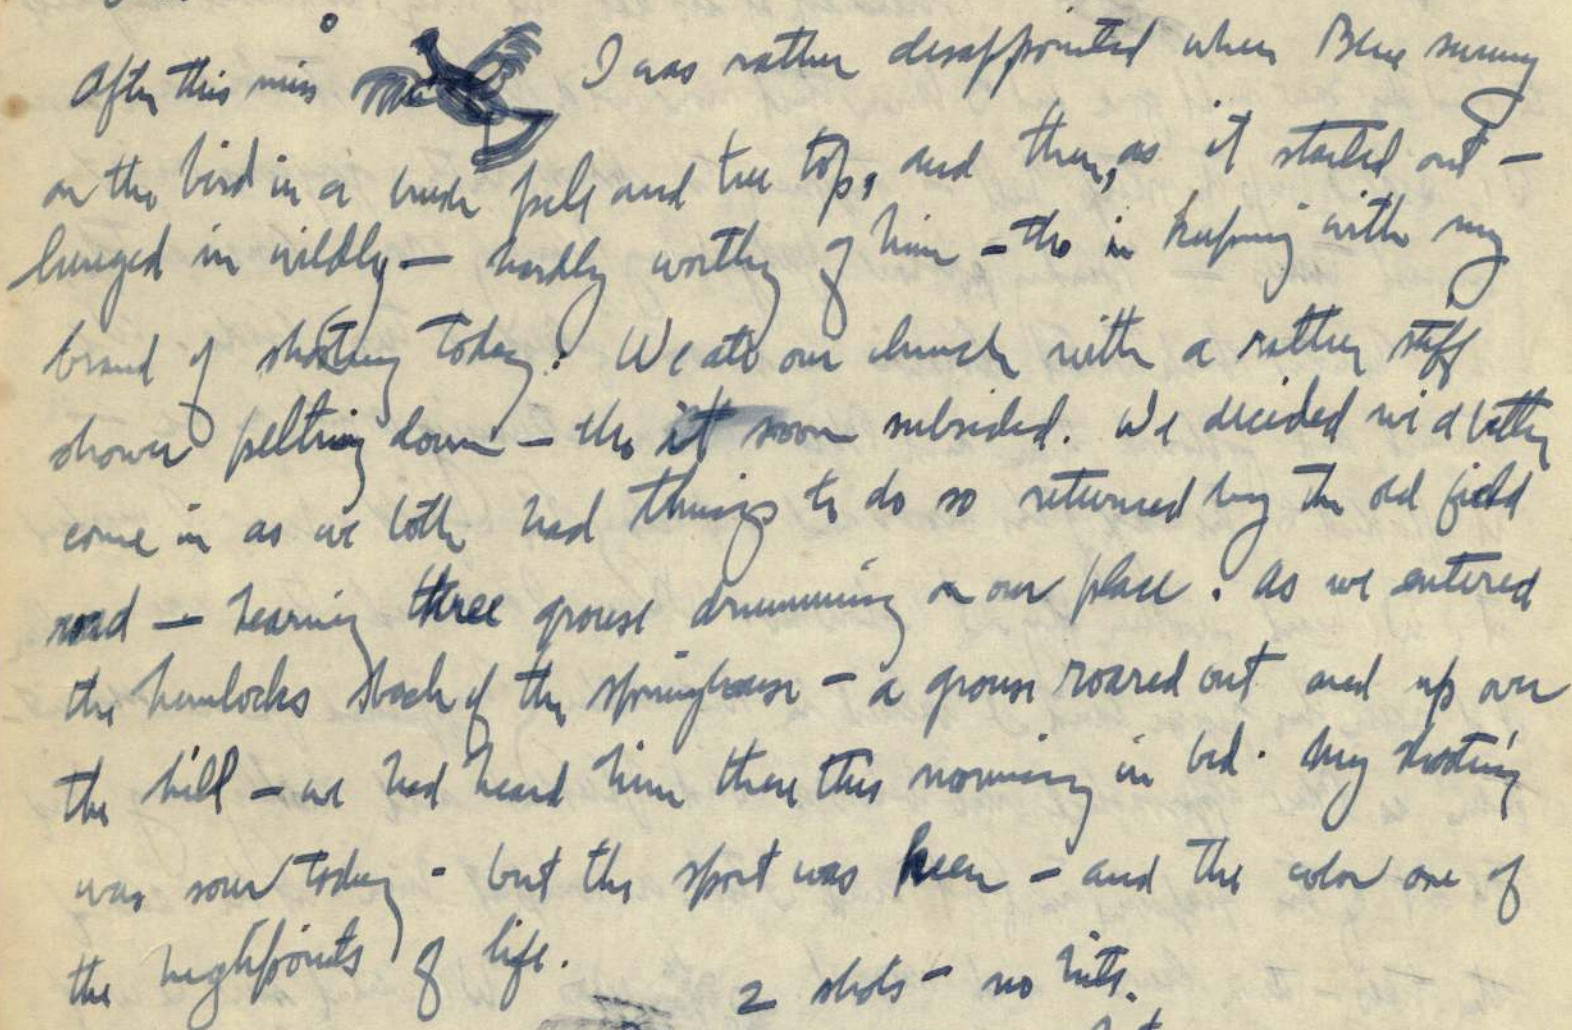 After this miss I was rather disappointed when Blue swung
on the bird in a brush pile and tree top, and then, as it started out –
lunged in wildly – hardly worthy of him – tho in keeping with my
brand of shooting today. We ate our lunch with a rather stiff
shower pelting down – tho it soon subsided. We decided we'd better
come in as we both had things to do so returned by the old field
road – hearing three grouse drumming on our place. As we entered
the hemlocks back of the springhouse – a grouse roared out and up over
the hill – we had heard him there this morning in bed. My shooting
was sour today – but the sport was keen – and the color one of
the highpoints of life.
2 shots – no hits.